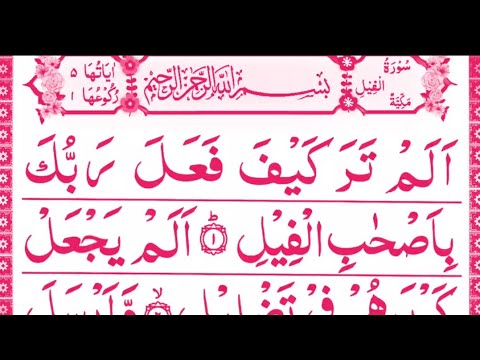 سُوْرَةُ الْفِيْلِ مَكِّيَّةٌ
بِسْمِ اللّٰهِ الرَّحْمٰنِ الرَّحِيْمِ
اٰيَاتُهَا ٥ رُكُوْعُهَا ١
اَلَمْ تَرَ كَيْفَ فَعَلَ رَبُّكَ
بِاَصْحٰبِ الْفِيْلِ ؕ ۝١ اَلَمْ يَجْعَلْ
كَيْدَهُمْ فِيْ تَضْلِيْلٍ ۙ ۝٢ وَّاَرْسَلَ